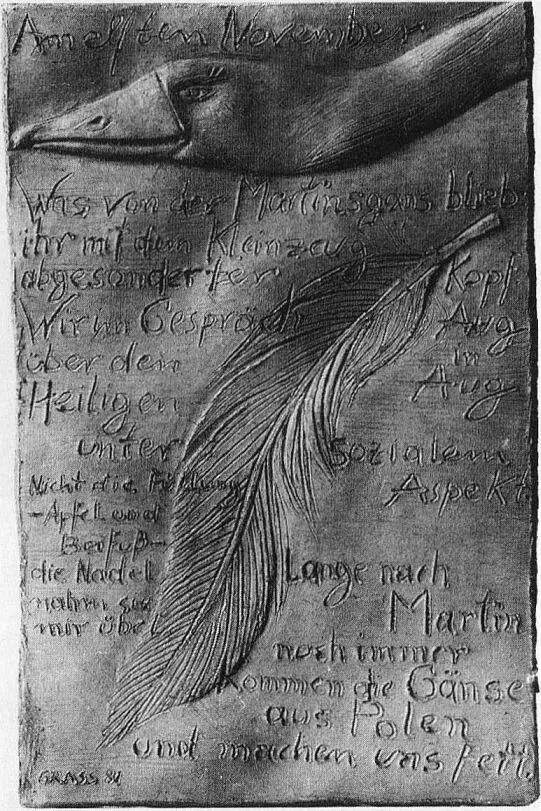 Am elften November
Was von der Martinsgans blieb
ihr mit dem Kleinzeug
abgesonderter Kopf
Wir im Gespräch Aug
über den in
Heiligen Aug
unter sozialem
Aspekt
Nicht die Füllung
- Apfel und
Beifuß -
die Nadel
nahm sie
mir übel
Lange nach
Martin
noch immer
kommen die Gänse
aus Polen
und machen uns fett.
GRASS 81